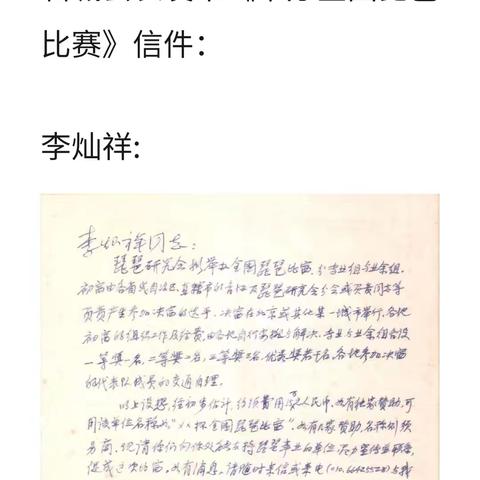 比赛》信件：
李灿祥:
李灿祥同志：
琵琶研究会拟举办全国琵琶比赛，分专业组与业余组，
初赛由各省或自治区、直辖市的音协及琵琶研究会分会或负责同志等
负责产生参加决赛的选手，决赛在北京或其他某一城市举行，各地
初赛的组织工作及经费，由各地自行安排与解决，专业与业余组各设
一等奖一名，二等奖二名，三等奖三名，优秀奖若干名，各地参加决赛
的代表队成员的交通自理。
以上设想，经初步估计，约须费用 万人民币，如有独家赞助，可
用该单位名称 "杯全国琵琶比赛"，如有几家赞助，名称则须
另商，现请你们向你处
促成这次比赛，如有消息，请随时来信或来电